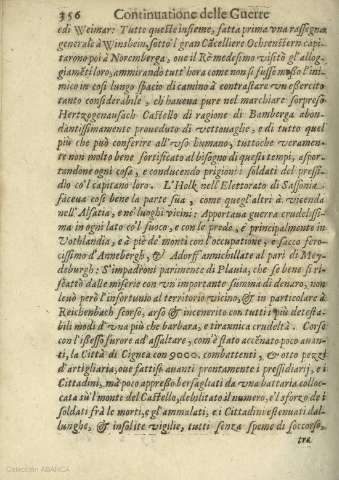 356 Continuatione delle Guerre
edi Weimar: Tutto questo insieme, fatta prima vna rassegna
generale à Winsheim, sotto'l gran Cãcelliere Ochrenstern capi-
tarono poi à Noremberga, oue il Rè medesimo visitò gl'allog-
giamẽti loro, ammirando tutt'hora come non si fusse mosso l'ini-
mico in così lungo spatio di camino à contrastare vn esercito
tanto considerabile, ch'haueua pure nel marchiare sorpreso
Hertzogenausach Castello di ragione di Bamberga abon-
dantissimamente proueduto di vettouaglie, e di tutto quel
più che può conferire all'vso humano, tuttoche veramen-
te non molto bene fortificato al bisogno di questi tempi, aspor-
tandone ogni cosa, e conducendo prigioni i soldati del presi-
dio co'l capitano loro. L'Holk nell'Elettorato di Sassonia
faceua così bene la parte sua, come quegl'altri à vicenda
nell'Alsatia, e ne' luoghi vicini: Apportaua guerra crudelissi-
ma in ogni lato co'l fuoco, e con le prede, e principalmente in
Vothlandia, e à piè de' monti con l'occupatione, e sacco fero-
cissimo d'Annebergh, & Adorff annichillate al pari di Mey-
deburgh: S'impadronì parimente di Plauia, che se bene si ri-
scattò dalle miserie con vn importante summa di denaro, non
leuò però l'infortunio al territorio vicino, & in particolare à
Reichenbach scorso, arso & incenerito con tutti i più detesta-
bili modi d'vna più che barbara, e tirannica crudeltà. Corso
con l'istesso furore ad assaltare, com'è stato accẽnato poco auan-
ti, la Città di Cignea con 9000. combattenti, & otto pezzi
d'artigliaria, oue fattisi auanti prontamente i pressidiarij, e i
Cittadini, mà poco appresso bersagliati da vna battaria colloc-
cata sù'l monte del Castello, debilitato il numero, e'l sforzo de i
soldati frà le morti, e gl'ammalati, e i Cittadini estenuati dal-
lunghe, & insolite vigilie, tutti senza speme di soccorso,
tra-
Colección ABANCA